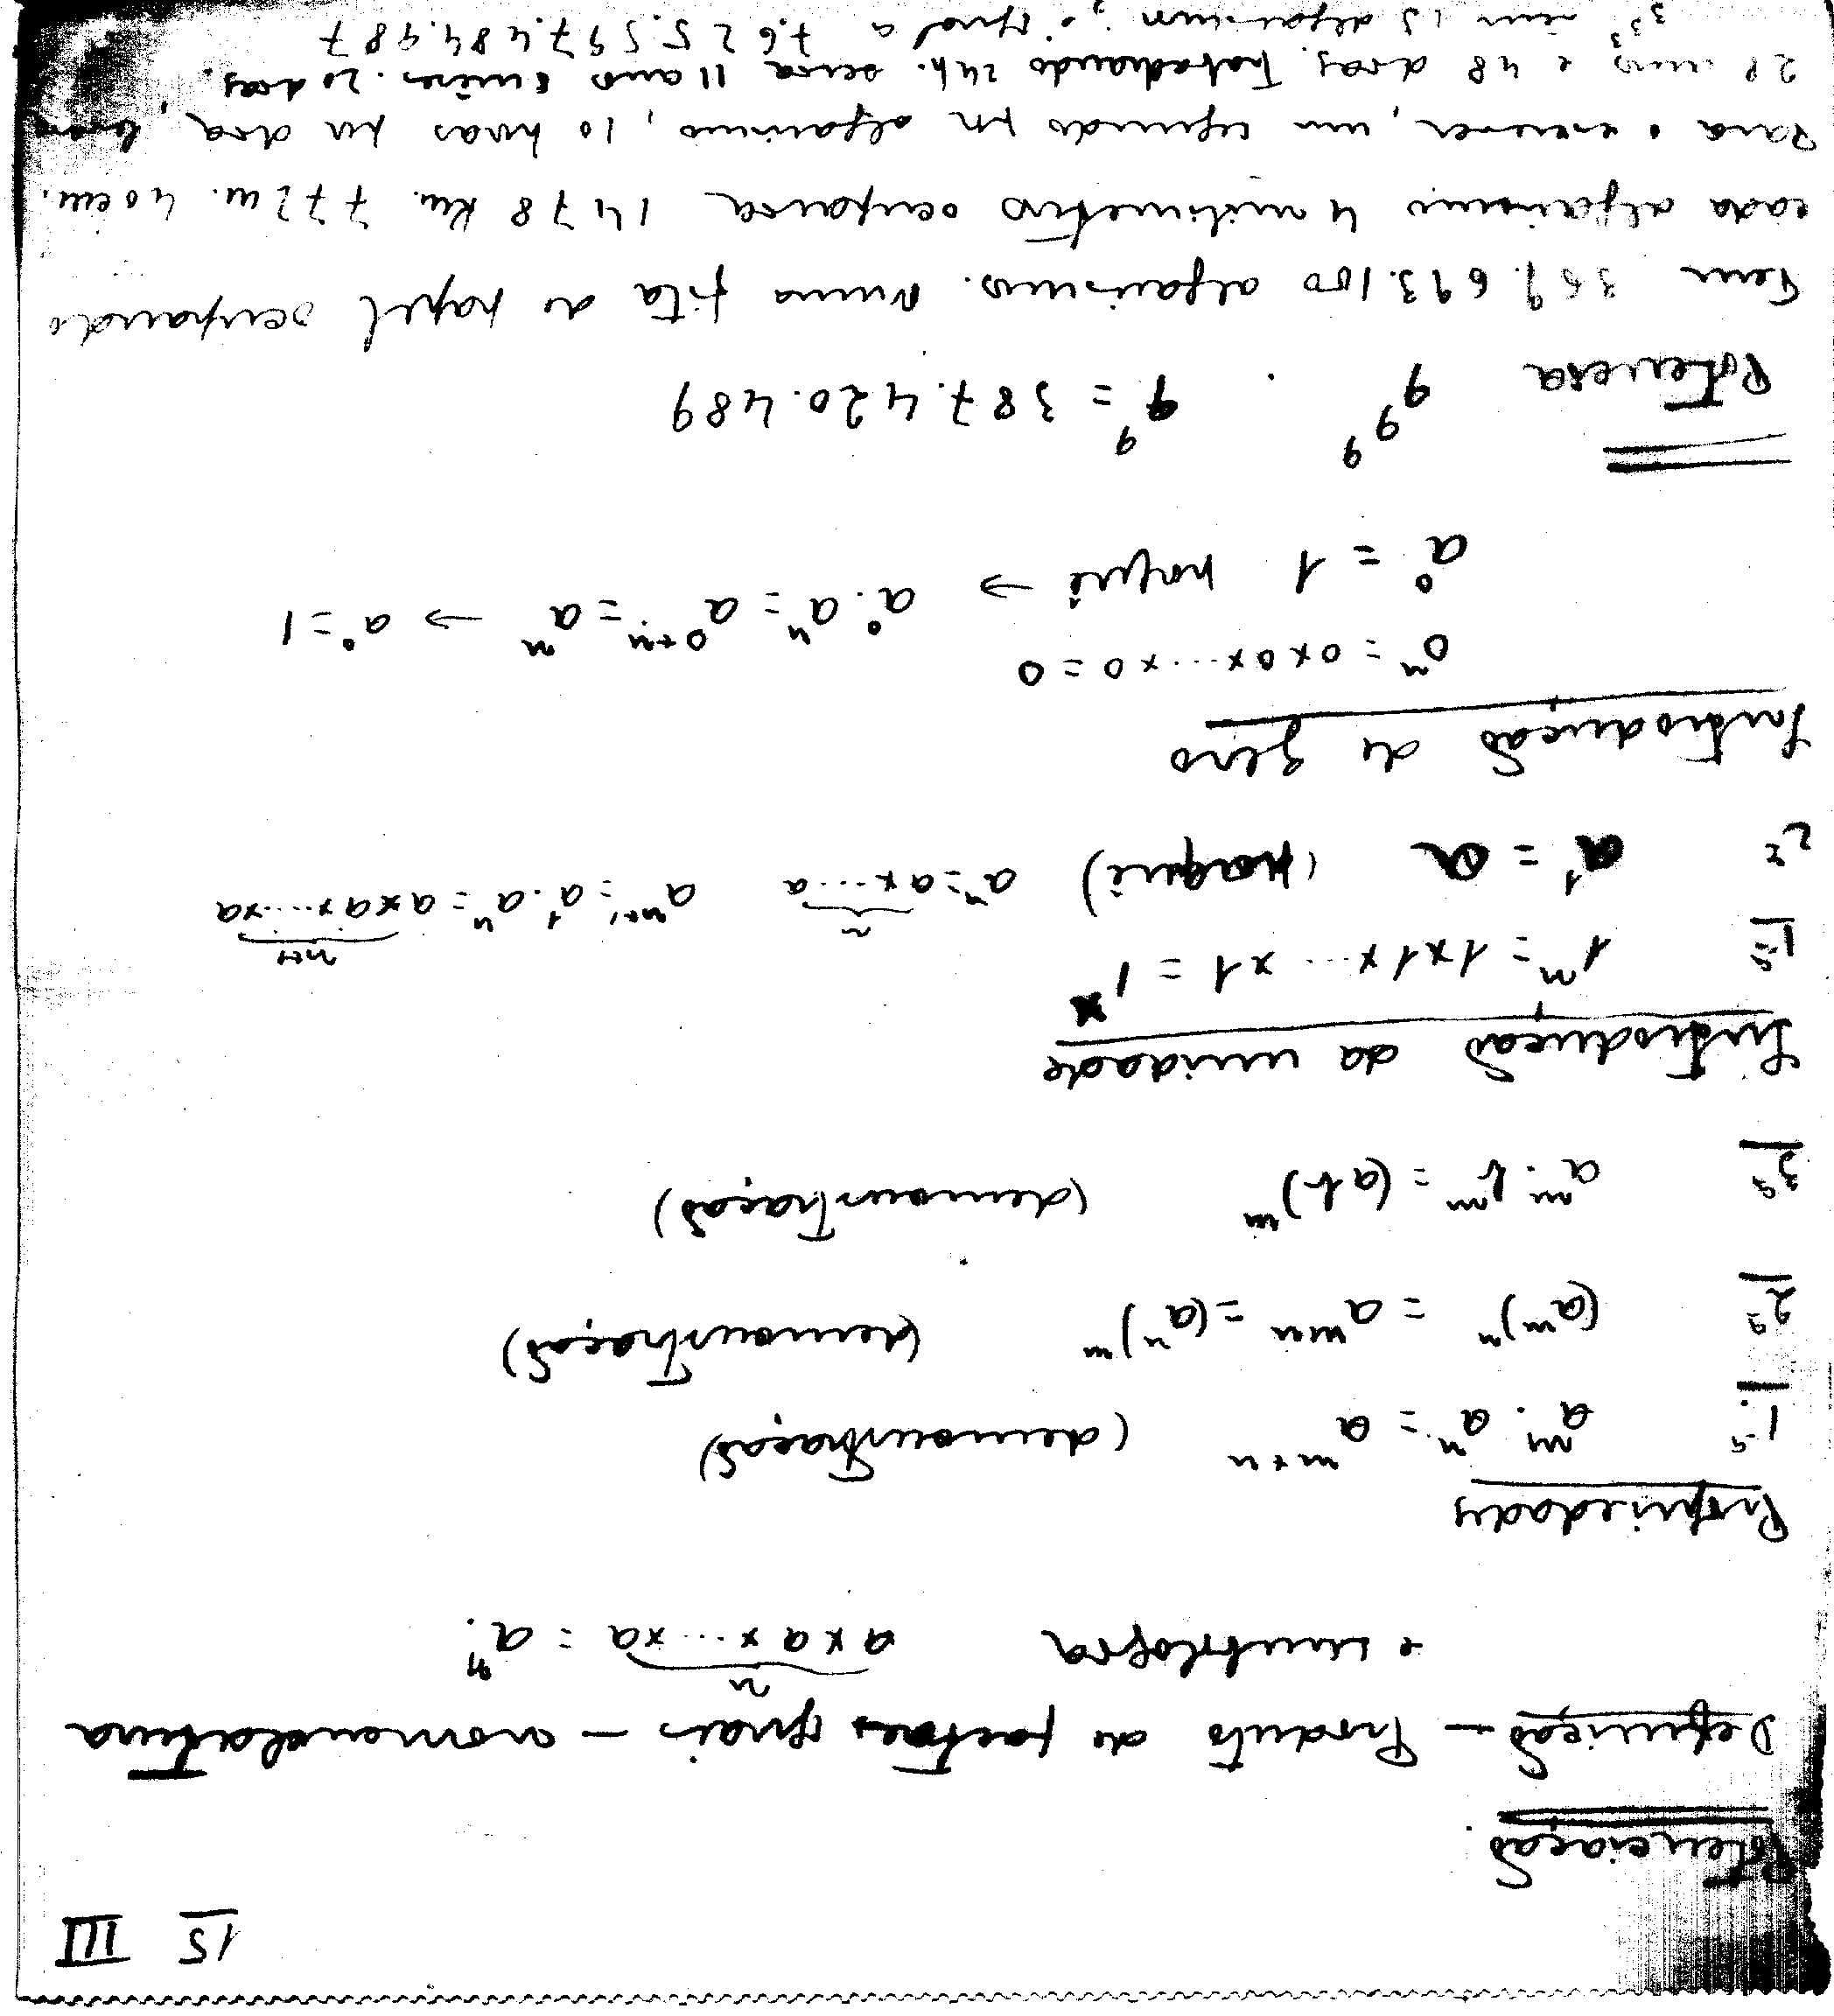 15 III
Potenciação.
Definição — Produto de factores iguais — nomenclatura
n
e simbologia a × a × ... × a = aⁿ.
Propriedades
1ª aᵐ. aⁿ = aᵐ⁺ⁿ (demonstração)
2ª (aᵐ)ⁿ = aᵐⁿ = (aⁿ)ᵐ (demonstração)
3ª aᵐ. bᵐ = (ab)ᵐ (demonstração)
Introdução da unidade
1ª 1ⁿ = 1×1×... ×1 = 1
n n+1
2ª a¹ = a (porquê) aⁿ = a×....a aⁿ⁺¹ = a¹. aⁿ = a×a×....×a
Introdução do zero
0ⁿ = 0×0×...×0 = 0
a⁰ = 1 porquê → a⁰. aⁿ = a⁰⁺ⁿ = aⁿ → a⁰ = 1
Potencia 9⁹⁹ . 9⁹ = 387.420.489
Tem 369.693.100 algarismos. Numa fita de papel ocupando
cada algarismo 4 milimetros ocuparia 1478 Km. 772 m. 40 cm.
Para o escrever, um segundo por algarismo, 10 horas por dia,
28 anos e 48 dias. Trabalhando 24h. seria 11 anos 8 mêses. 20 dias.
3³³ tem 13 algarismos; é igual a 7.625.597.484.987